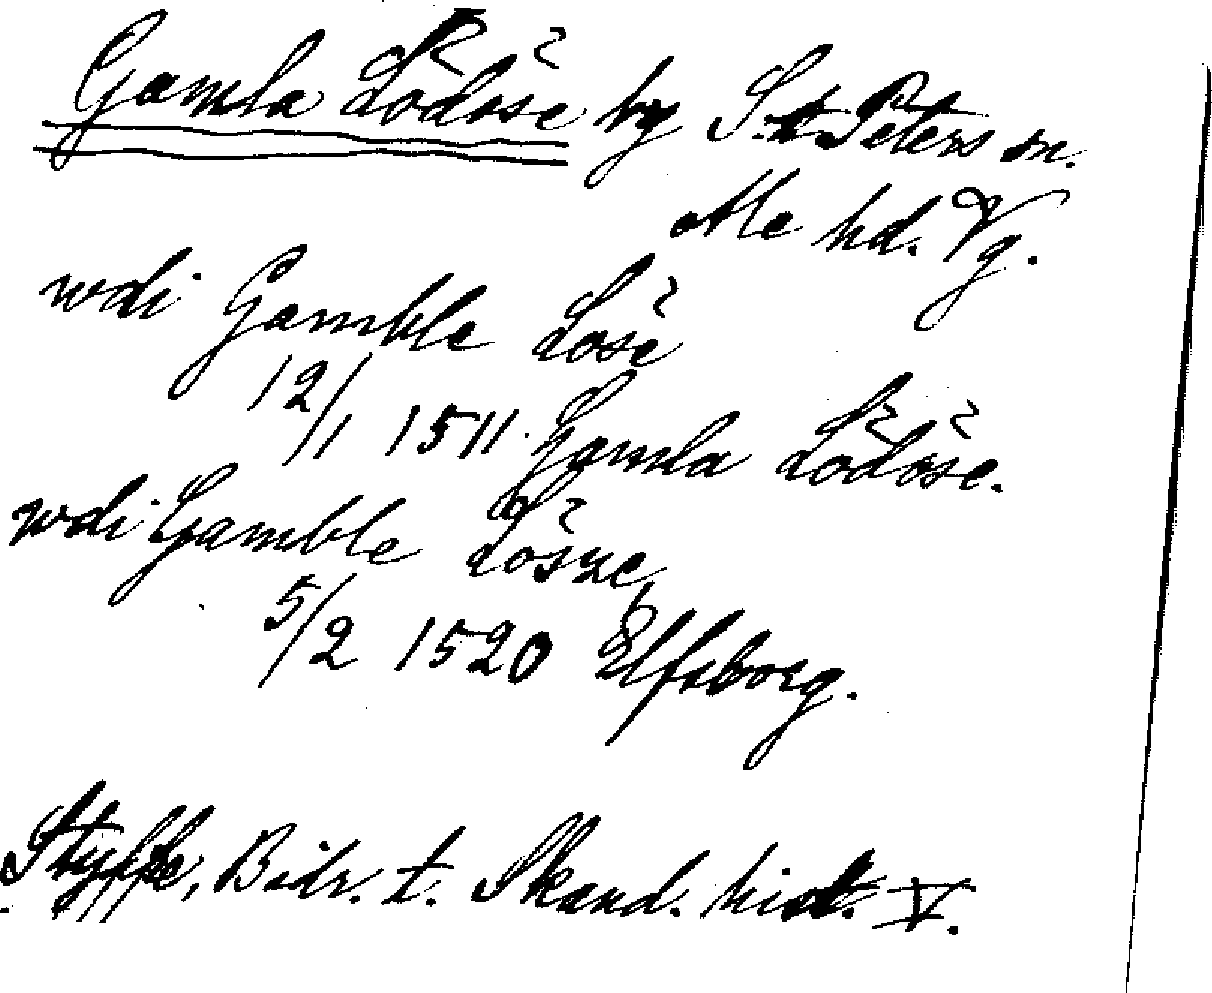 Gamla Lödöse by S:t Peters sn.
Ale hd. Vg.
wdi Gamble Losè
12/1 1511. Gamla Lödöse.
wdi Gamble Lösze
5/2 1520 Elfsborg.
Styffe, Bidr. t. Skand. hist. V.